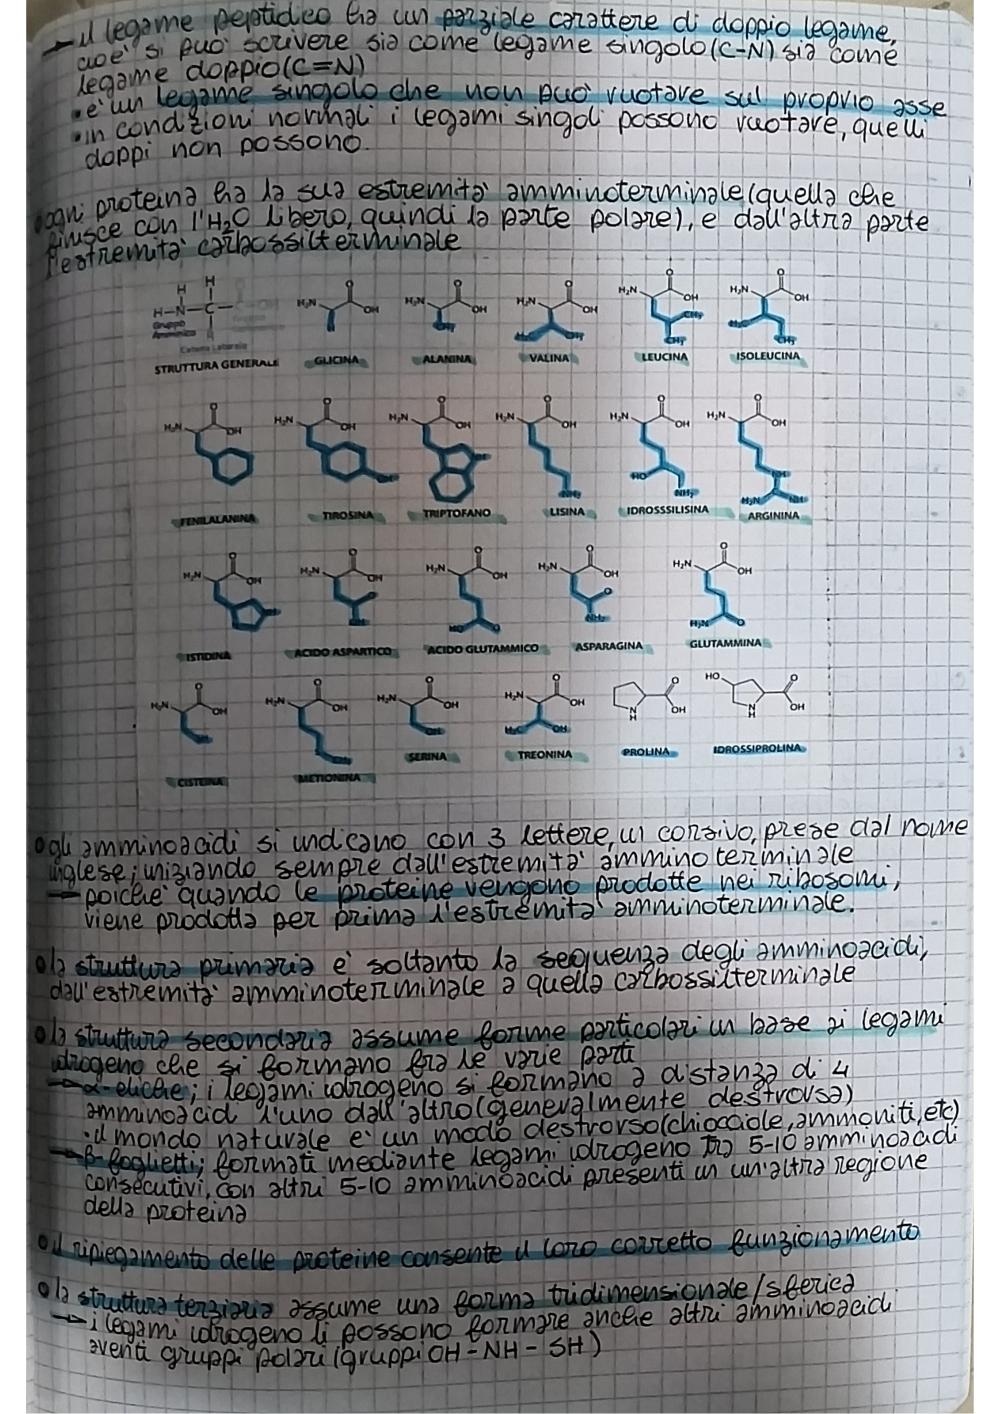 → il legame peptidico ha un parziale carattere di doppio legame,
cioè si può scrivere sia come legame singolo (C-N) sia come
legame doppio (C=N)
• è un legame singolo che non può ruotare sul proprio asse
• in condizioni normali i legami singoli possono ruotare, quelli
doppi non possono.
• ogni proteina ha la sua estremità amminoterminale (quella che
finisce con l'H₂O libero, quindi la parte polare), e dall'altra parte
l'estremità carbossilterminale
H H
H-N-C-
Gruppo
Amminico
Catena Laterale
STRUTTURA GENERALE
H₂N O OH
GLICINA
H₂N O OH
ALANINA
H₂N O OH
VALINA
H₂N O OH CH₃ CH₃
LEUCINA
H₂N O OH CH₃
ISOLEUCINA
H₂N O OH
FENILALANINA
H₂N O OH
TIROSINA
H₂N O OH
TRIPTOFANO
H₂N O OH NH₂
LISINA
H₂N O OH HO NH₂
IDROSSSILISINA
H₂N O OH NH H₂N NH
ARGININA
H₂N O OH
ISTIDINA
H₂N O OH
ACIDO ASPARTICO
H₂N O OH HO O
ACIDO GLUTAMMICO
H₂N O OH O NH₂
ASPARAGINA
H₂N O OH H₂N O
GLUTAMMINA
H₂N O OH
CISTEINA
H₂N O OH
METIONINA
H₂N O OH OH
SERINA
H₂N O OH OH
TREONINA
O OH N H
PROLINA
HO O OH N H
IDROSSIPROLINA
• gli amminoacidi si indicano con 3 lettere, in corsivo, prese dal nome
inglese; iniziando sempre dall'estremità amminoterminale
→ poiché quando le proteine vengono prodotte nei ribosomi,
viene prodotta per prima l'estremità amminoterminale.
• la struttura primaria è soltanto la sequenza degli amminoacidi,
dall'estremità amminoterminale a quella carbossilterminale
• la struttura secondaria assume forme particolari in base ai legami
idrogeno che si formano fra le varie parti
→ α-eliche; i legami idrogeno si formano a distanza di 4
amminoacidi l'uno dall'altro (generalmente destrorsa)
• il mondo naturale è un modo destrorso (chiocciole, ammoniti, etc)
→ β-foglietti; formati mediante legami idrogeno tra 5-10 amminoacidi
consecutivi, con altri 5-10 amminoacidi presenti in un'altra regione
della proteina
• il ripiegamento delle proteine consente il loro corretto funzionamento
• la struttura terziaria assume una forma tridimensionale/sferica
→ i legami idrogeno li possono formare anche altri amminoacidi
aventi gruppi polari (gruppi OH - NH - SH)